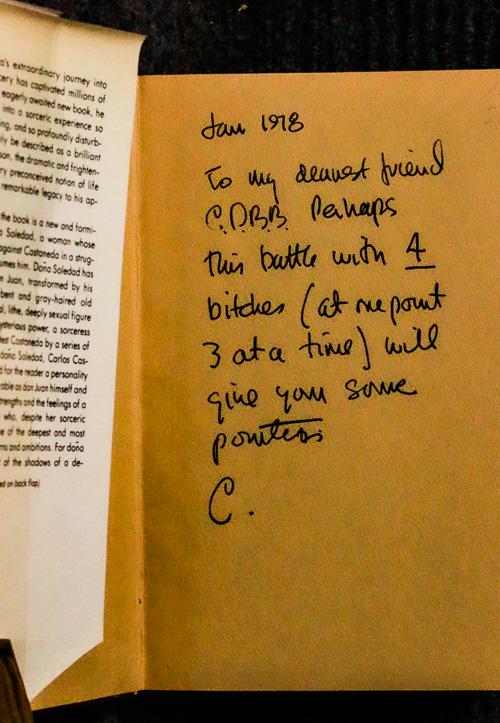 a's extraordinary journey into
cery has captivated millions of
eagerly awaited new book, he
into a sorceric experience so
ing, and so profoundly disturb-
ly be described as a brilliant
son, the dramatic and frighten-
ry preconceived notion of life
remarkable legacy to his ap-
the book is a new and formi-
a Soledad, a woman whose
against Castaneda in a strug-
umes him. Doña Soledad has
n Juan, transformed by his
bent and gray-haired old
al, lithe, deeply sexual figure
ysterious power, a sorceress
test Castaneda by a series of
doña Soledad, Carlos Cas-
d for the reader a personality
able as don Juan himself and
trengths and the feelings of a
who, despite her sorceric
e of the deepest and most
ms and ambitions. For doña
t of the shadows of a de-
ed on back flap)
Jan 1978
To my dearest friend
C.D.B.B. Perhaps
this battle with 4
bitches (at one point
3 at a time) will
give you some
pointers
C.